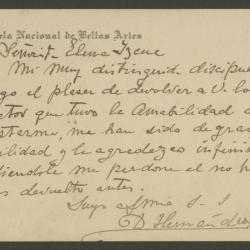 ela Nacional de Bellas Artes
Señorita Elena Izcue
Mi muy distinguida discipul
go el placer de devolver a V. lo
ctor que tuvo la amabilidad d
starme, me han sido de gran
ilidad y le agradezco infinit
diendole me perdone el no h
s devuelto antes.
Suyo
D Hernández